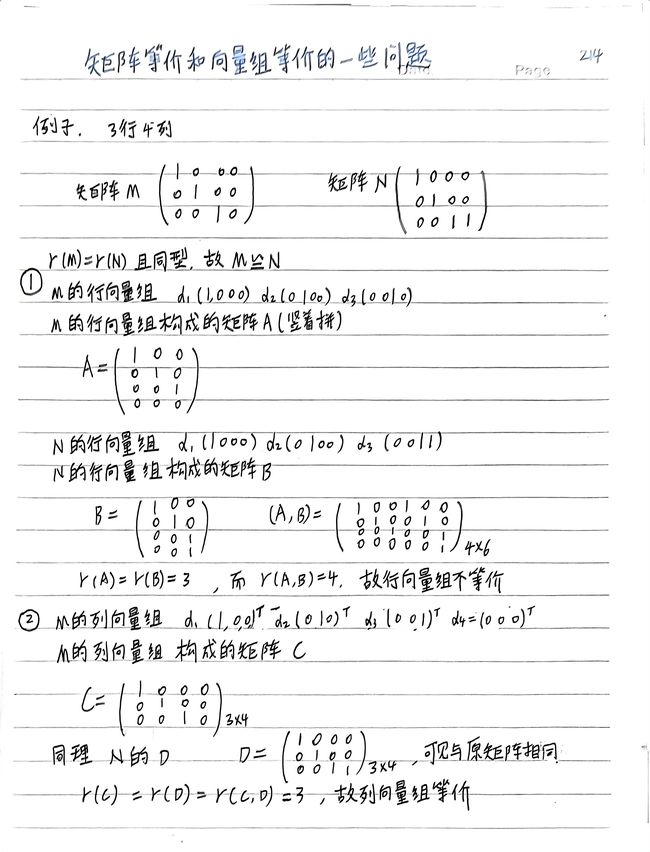 矩阵等价和向量组等价的一些问题 Page 214
例子. 3行4列
矩阵 M (1 0 0 0
0 1 0 0
0 0 1 0)
矩阵 N (1 0 0 0
0 1 0 0
0 0 1 1)
r(M)=r(N) 且同型, 故 M≌N
① M的行向量组 α₁(1,000) α₂(0100) α₃(0010)
M的行向量组构成的矩阵A(竖着拼)
A=(1 0 0
0 1 0
0 0 1
0 0 0)
N的行向量组 α₁(1000) α₂(0100) α₃(0011)
N的行向量组构成的矩阵B
B=(1 0 0
0 1 0
0 0 1
0 0 1)
(A,B)=(1 0 0 1 0 0
0 1 0 0 1 0
0 0 1 0 0 1
0 0 0 0 0 1)4×6
r(A)=r(B)=3 , 而 r(A,B)=4. 故行向量组不等价
② M的列向量组 α₁(1,0,0)ᵀ α₂(010)ᵀ α₃(001)ᵀ α₄=(000)ᵀ
M的列向量组 构成的矩阵 C
C=(1 0 0 0
0 1 0 0
0 0 1 0)3×4
同理 N的D D=(1 0 0 0
0 1 0 0
0 0 1 1)3×4 , 可见与原矩阵相同
r(C)=r(D)=r(C,D)=3 , 故列向量组等价